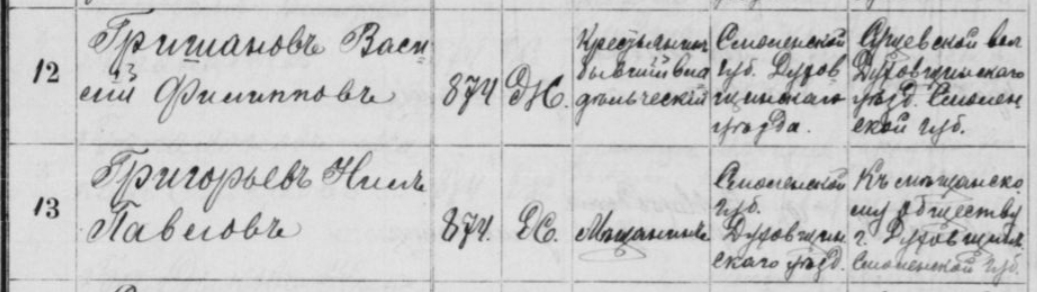 12 Гришановъ Васи
лій Филипповъ
874
Ж.
Крестьянинъ
бывшій вла
дѣльческій
Смоленской
губ. Духов
щинскаго
уѣзда.
вол
Духовщинскаго
уѣзд. Смолен
ской губ.
13 Григорьевъ Нилъ
Павловъ
874
Мѣщанинъ
Смоленской
губ.
Духовщин
скаго уѣзд.
Къ мѣщанско
му обществу
г. Духовщины
Смоленской губ.